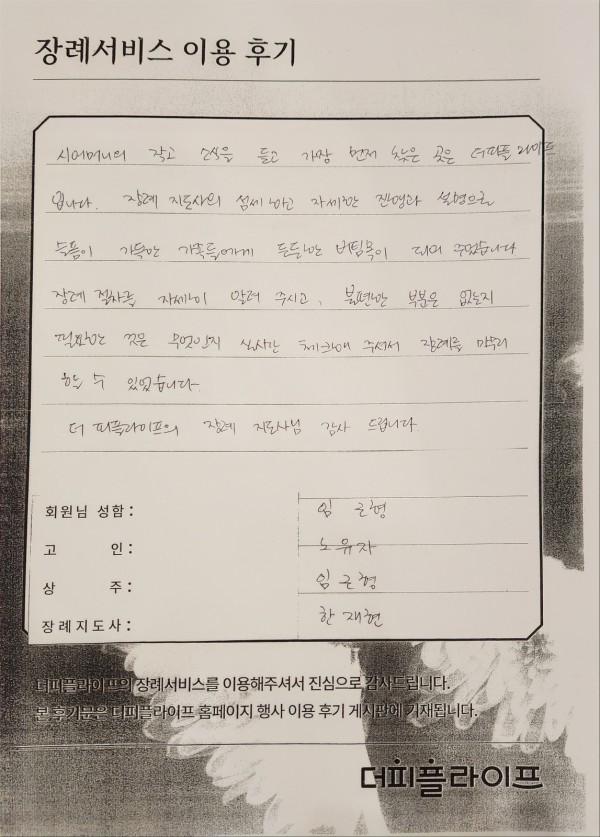 장례서비스 이용 후기
시어머니의 작고 소식을 듣고 가장 먼저 찾은 곳은 더피플 라이프
입니다. 장례 지도사의 섬세하고 자세한 진행과 설명으로
슬픔이 가득한 가족들에게 든든한 버팀목이 되어 주었습니다
장례 절차를 자세히 알려 주시고, 불편한 부분은 없는지
필요한 것은 무엇인지 실시간 체크해 주셔서 장례를 마무리
할 수 있었습니다.
더 피플라이프의 장례 지도사님 감사 드립니다.
회원님 성함 : 임근형
고 인 : 노유자
상 주 : 임근형
장례지도사 : 한재현
더피플라이프의 장례서비스를 이용해주셔서 진심으로 감사드립니다.
본 후기글은 더피플라이프 홈페이지 행사 이용 후기 게시판에 기재됩니다.
더피플라이프